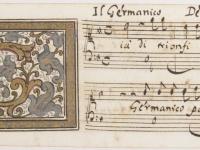 Il Germanico De
ia di trionfi
Germanico